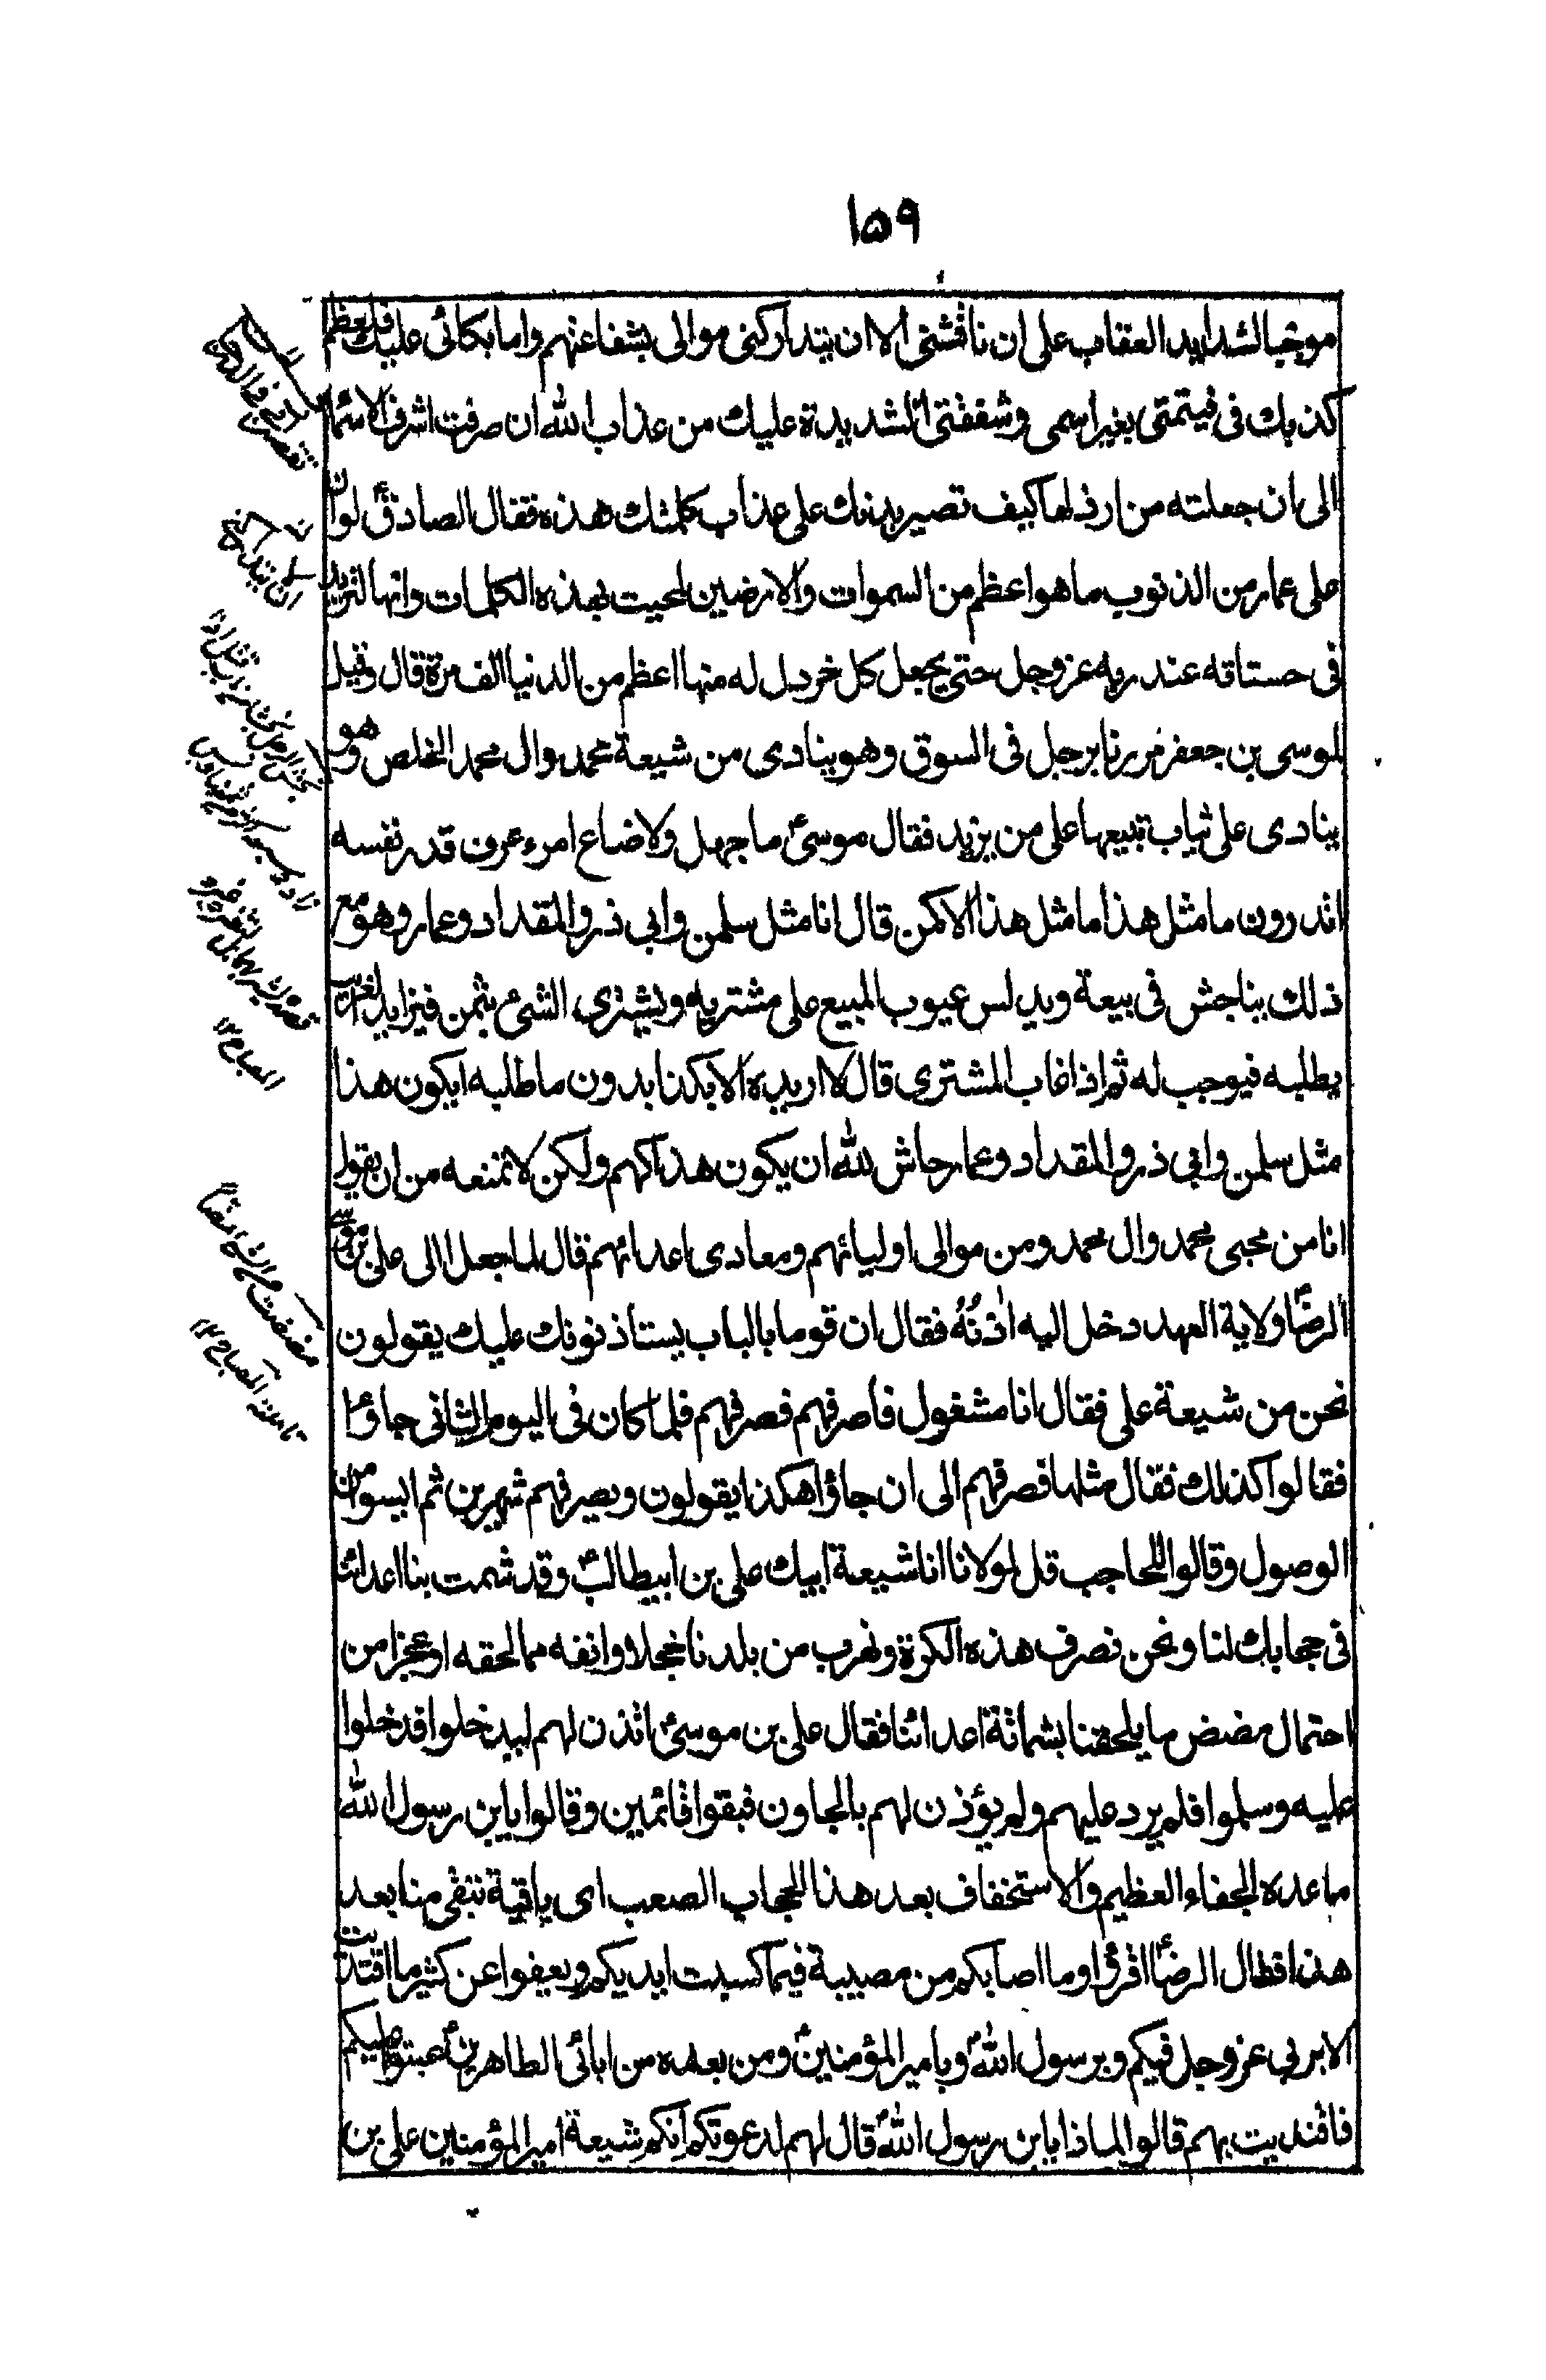 ١٥٩
موجبا لشدايد العقاب على ان ناقشنى الا ان يتداركنى موالى بشفاعتهم واما بكائى عليك فلعظم
كذبك فى فيتمتى بغير اسمى وشفقتى الشديدة عليك من عذاب الله ان صرفت اشرف الاسماء
الى ان جعلته من ارذلها كيف تصير بدنك على عذاب كلمتك هذه فقال الصادقؑ لو ان
على عمار من الذنوب ما هو اعظم من السموات والارضين لمحيت بهذه الكلمات وانها لتزيد
فى حسناته عند ربه عز وجل حتى يجعل كل خردل له منها اعظم من الدنيا الف مرة قال وقيل
لموسى بن جعفر مررنا برجل فى السوق وهو ينادى من شيعة محمد وال محمد الخلص وهو
ينادى على ثياب تبيعها على من يزيد فقال موسىؑ ما جهل ولا ضاع امرء عرف قدر نفسه
اتدرون ما مثل هذا ما مثل هذا الا كمن قال انا مثل سلمن وابى ذر والمقداد وعمار وهو مع
ذلك يناجش فى بيعة ويدلس عيوب المبيع على مشتريه ويشترى الشئ بثمن فيزايد لغريب
يطلبه فيوجب له ثم اذا غاب المشترى قال لا اريده الا بكذا بدون ما طلبه ايكون هذا
مثل سلمن وابى ذر والمقداد وعمار حاش لله ان يكون هذا كهم ولكن لا تمنعه من ان يقول
انا من محبى محمد وال محمد ومن موالى اوليائهم ومعادى اعدائهم قال لما جعل الى على بن موسى
الرضاؑ ولاية العهد دخل اليه اذنُهُ فقال ان قوما بالباب يستاذنونك عليك يقولون
نحن من شيعة على فقال انا مشغول فاصرفهم فصرفهم فلما كان فى اليوم الثانى جاؤا
فقالوا كذلك فقال مثلها فصرفهم الى ان جاؤا هكذا يقولون ويصرفهم شهرين ثم ايسوا من
الوصول وقالوا للحاجب قل لمولانا انا شيعة ابيك على بن ابيطالبؑ وقد شمت بنا اعدائنا
فى حجابك لنا ونحن نصرف هذه الكرة ونهرب من بلدنا خجلا وانفه مما لحقه او عجزا من
احتمال مضض ما يلحقنا بشماتة اعدائنا فقال على بن موسىؑ ائذن لهم ليدخلوا فدخلوا
عليه وسلموا فلم يرد عليهم ولم يؤذن لهم بالجلوس فبقوا قائمين وقالوا يابن رسول الله
ما هذه الجفاء العظيم والاستخفاف بعد هذا الحجاب الصعب اى باقية تتقى منا بعد
هذا فقال الرضاؑ اقرؤا وما اصابكم من مصيبة فيما كسبت ايديكم ويعفوا عن كثير ما اقتديت
الا بربى عز وجل فيكم وبرسول اللهؐ وبامير المؤمنينؑ ومن بعده من ابائى الطاهرينؑ عتبوا عليكم
فاقتديت بهم قالوا لماذا يابن رسول اللهؐ قال لهم لدعوتكم انكم شيعة امير المؤمنين على بن